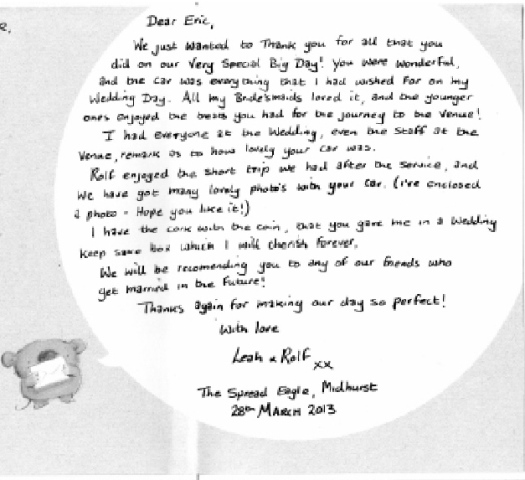 Dear Eric,
We just wanted to Thank you for all that you
did on our Very Special Big Day! You were wonderful,
and the car was everything that I had wished for on my
Wedding Day. All my Bridesmaids loved it, and the younger
ones enjoyed the you had for the journey to the Venue!
I had everyone at the Wedding, even the Staff at the
Venue, remark as to how lovely your car was.
Rolf enjoyed the short trip we had after the service, and
we have got many lovely photo's with your car. (I've enclosed
a photo - Hope you like it!)
I have the cork with the coin, that you gave me in a Wedding
keep sake box which I will cherish forever.
We will be recomending you to any of our friends who
get married in the future!
Thanks again for making our day so perfect!
With love
Leah & Rolf xx
The Spread Eagle, Midhurst
28th MARCH 2013